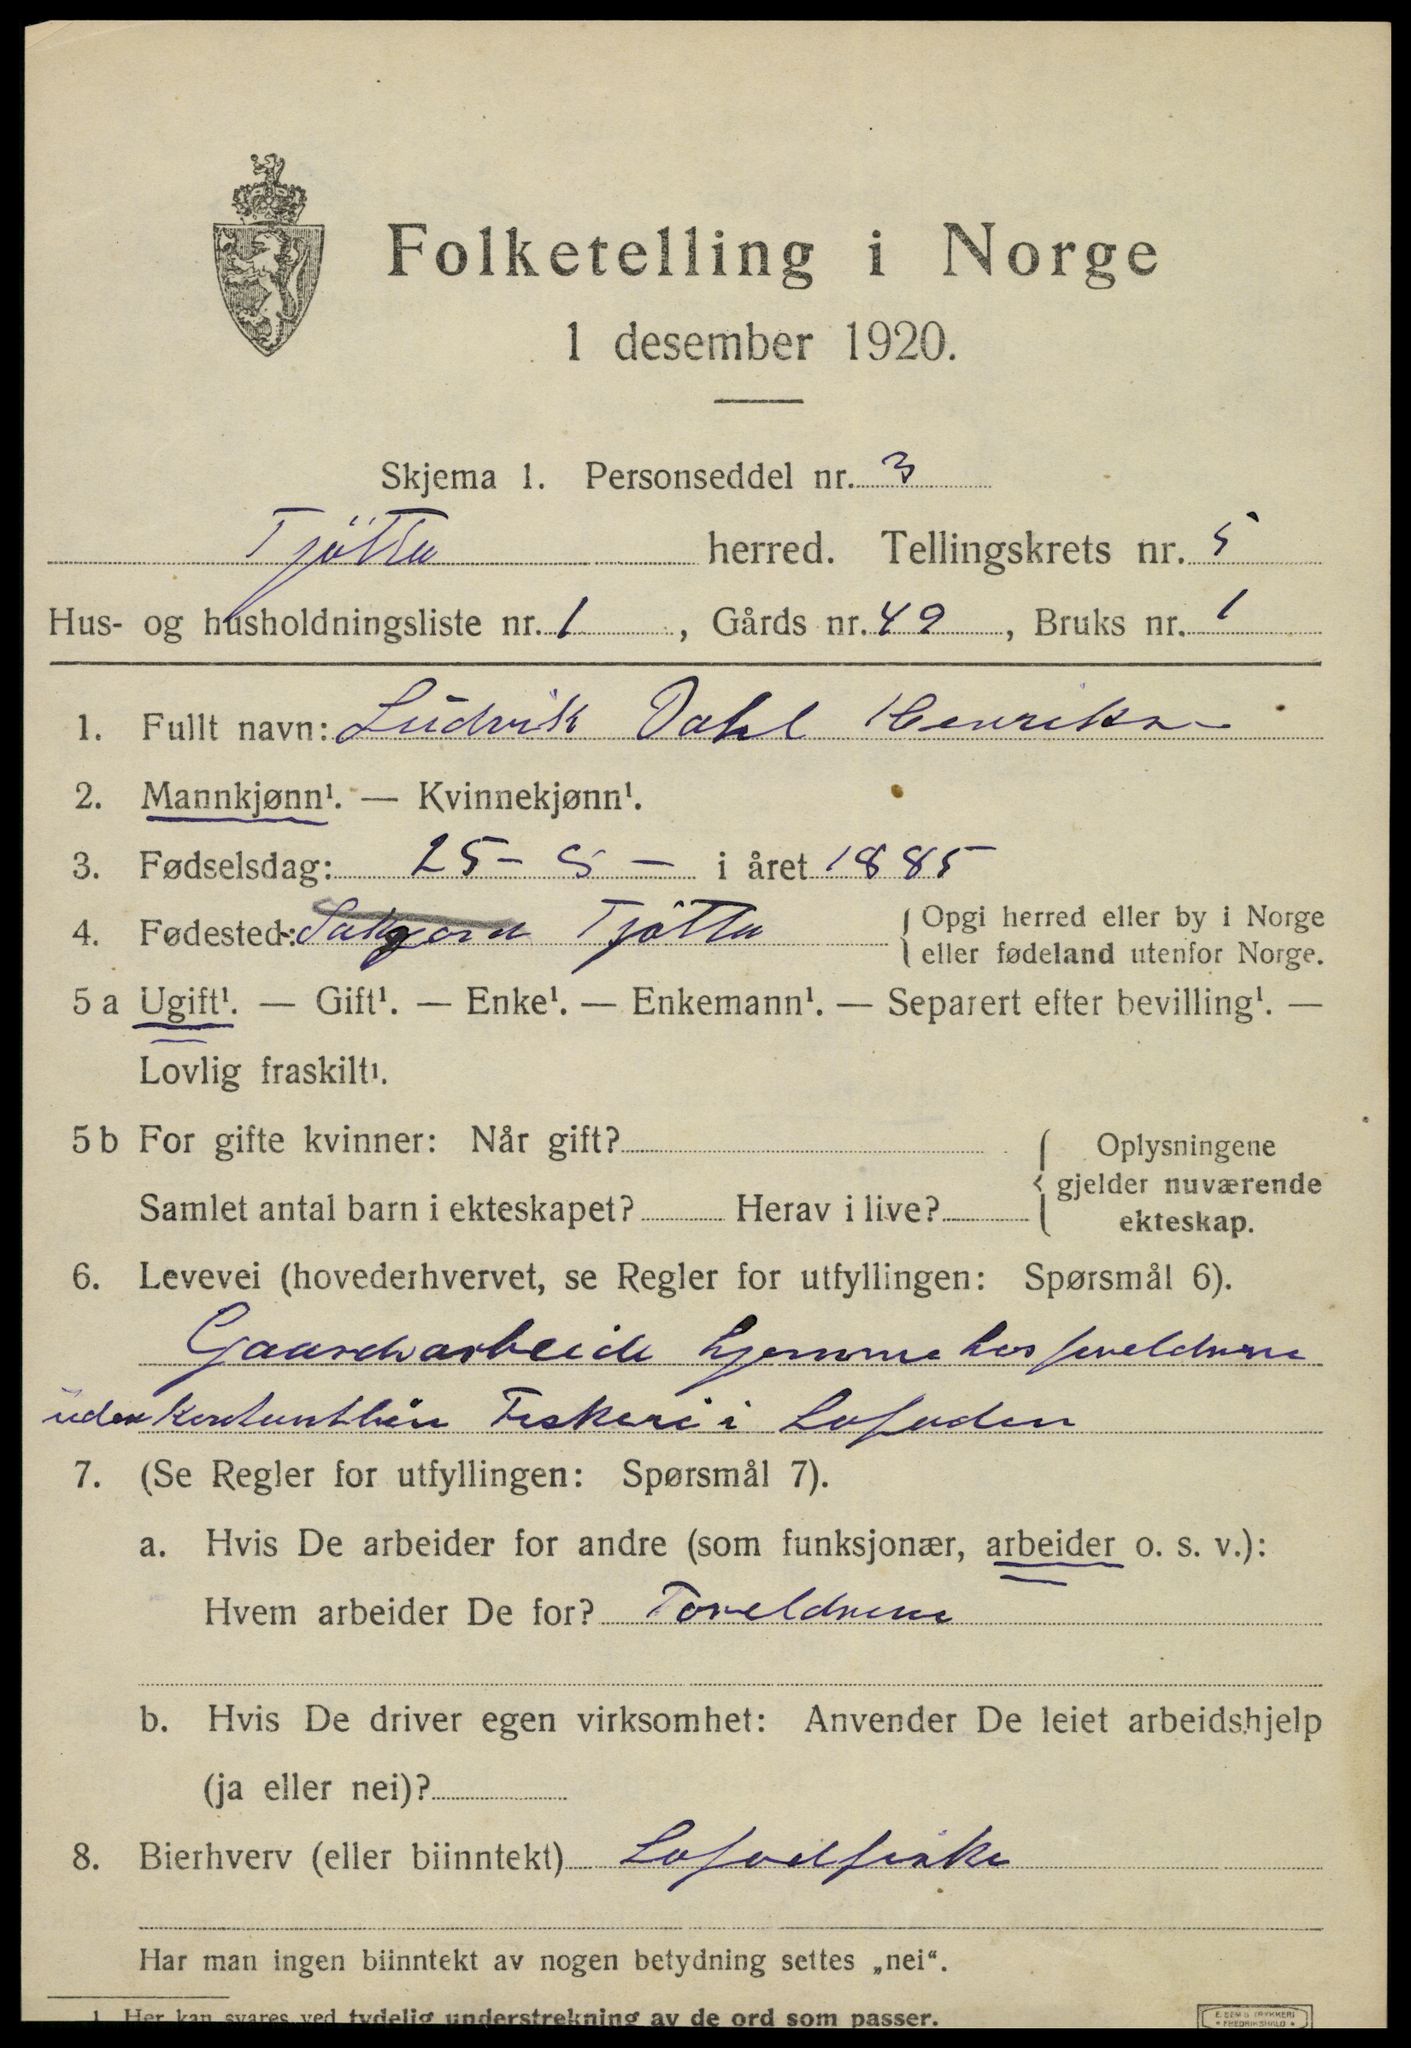 Folketelling i Norge
1 desember 1920.
Skjema 1. Personseddel nr. 3
Tjötta herred. Tellingskrets nr. 5
Hus- og husholdningsliste nr. 1, Gårds nr. 49, Bruks nr. 1
1. Fullt navn: Ludvik Dahl Henriks
2. Mannkjønn¹. — Kvinnekjønn¹.
3. Fødselsdag: 25 - 5 - i året 1885
4. Fødested: Tjötta
{ Opgi herred eller by i Norge
eller fødeland utenfor Norge.
5 a Ugift¹. — Gift¹. — Enke¹. — Enkemann¹. — Separert efter bevilling¹. —
Lovlig fraskilt¹.
5 b For gifte kvinner: Når gift?
Samlet antal barn i ekteskapet? Herav i live?
{ Oplysningene
gjelder nuværende
ekteskap.
6. Levevei (hovederhvervet, se Regler for utfyllingen: Spørsmål 6).
Gaardsarbeide hjemme hos foreldrene
uden kontantlön Fiskeri i Lofoden
7. (Se Regler for utfyllingen: Spørsmål 7).
a. Hvis De arbeider for andre (som funksjonær, arbeider o. s. v.):
Hvem arbeider De for? Foreldrene
b. Hvis De driver egen virksomhet: Anvender De leiet arbeidshjelp
(ja eller nei)?
8. Bierhverv (eller biinntekt) Lofodfiske
Har man ingen biinntekt av nogen betydning settes „nei“.
1. Her kan svares ved tydelig understrekning av de ord som passer.
E. SEM'S TRYKKERI
• FREDRIKSHALD •